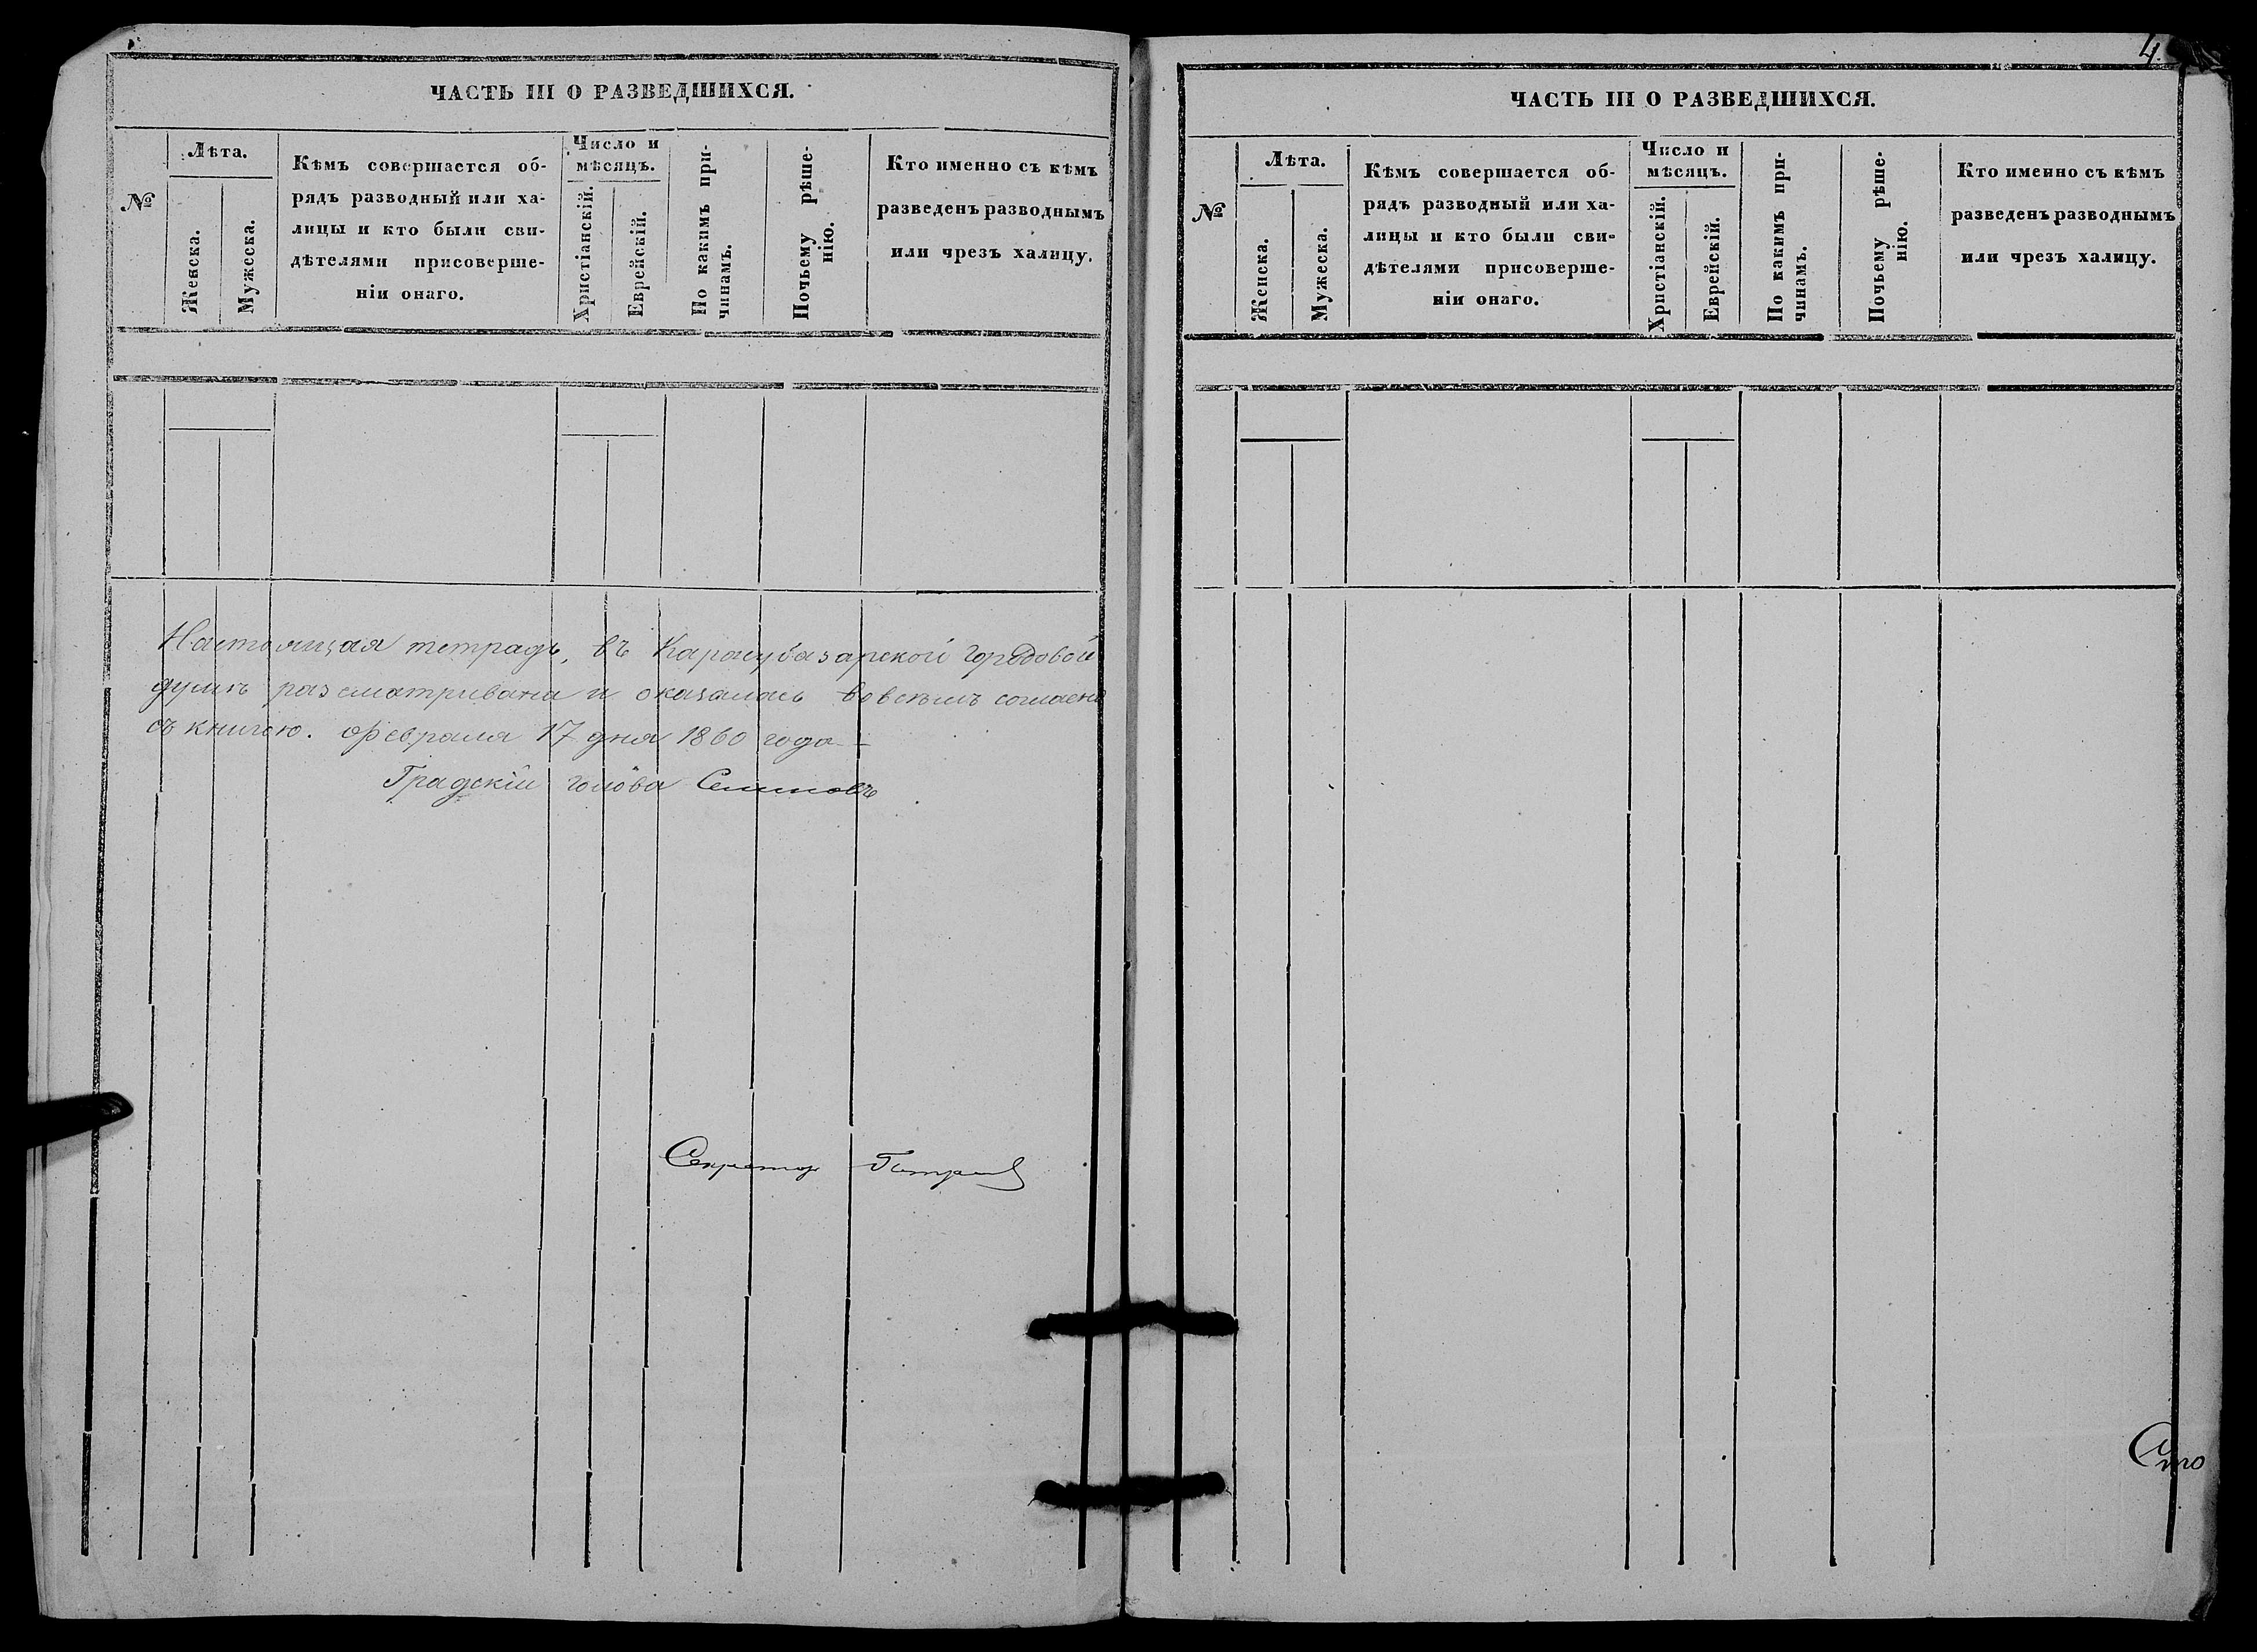 ЧАСТЬ III О РАЗВЕДШИХСЯ.
№
Лѣта.
Женска.
Мужеска.
Кѣмъ совершается об-
рядъ разводный или ха-
лицы и кто были сви-
дѣтелями присоверше-
ніи онаго.
Число и
мѣсяцъ.
Христіанскій.
Еврейскій.
По какимъ при-
чинамъ.
Почьему рѣше-
нію.
Кто именно съ кѣмъ
разведенъ разводнымъ
или чрезъ халицу.
Настоящая тетрадь, въ Карасубазарской городовой
думѣ разсматривана и оказалась вовсемъ согласна
съ книгою. Февраля 17 дня 1860 года
Градскій голова
Секретарь
4.
ЧАСТЬ III О РАЗВЕДШИХСЯ.
№
Лѣта.
Женска.
Мужеска.
Кѣмъ совершается об-
рядъ разводный или ха-
лицы и кто были сви-
дѣтелями присоверше-
ніи онаго.
Число и
мѣсяцъ.
Христіанскій.
Еврейскій.
По какимъ при-
чинамъ.
Почьему рѣше-
нію.
Кто именно съ кѣмъ
разведенъ разводнымъ
или чрезъ халицу.